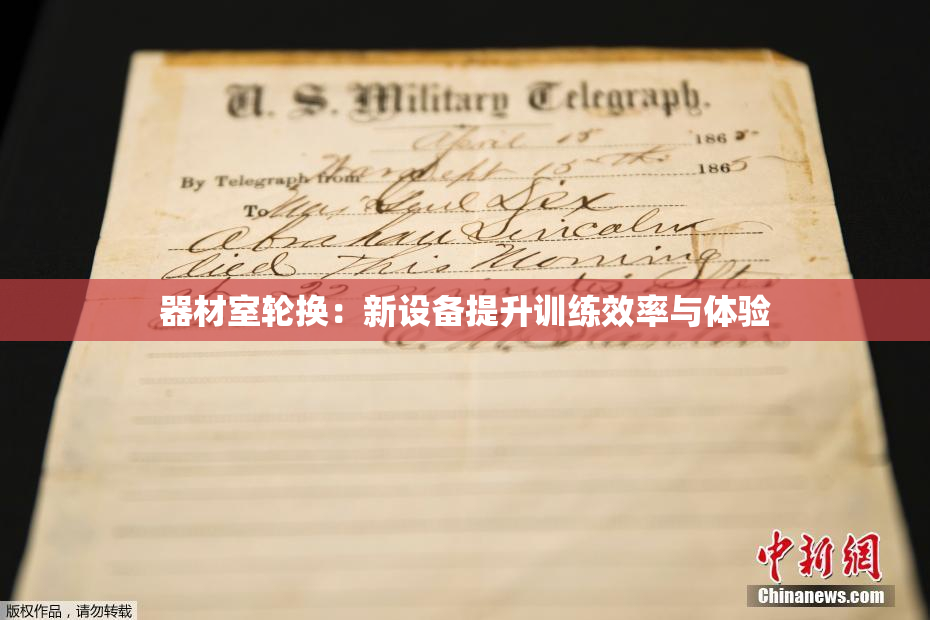 U. S. Military Telegraph.
April 15 1865
By Telegraph from War Dept 15th 1865
To Maj Genl Dix
Abraham Lincoln
died This Morning
at 22 minutes after
器材室轮换：新设备提升训练效率与体验
中新网
Chinanews.com
版权作品，请勿转载